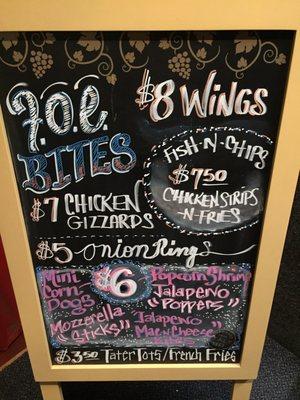 J.O.E.
BITES
$8 WINGS
FISH-N-CHIPS
$7.50
CHICKEN STRIPS
-N-FRIES
$7 CHICKEN
GIZZARDS
$5 Onion Rings
$6
Mini
Corn-
Dogs
Mozzerella
"Sticks"
Popcorn Shrimp
Jalapeno
"Poppers"
Jalapeno
Mac-n-Cheese
Bites
$3.50 TATER TOTS/FRENCH FRIES